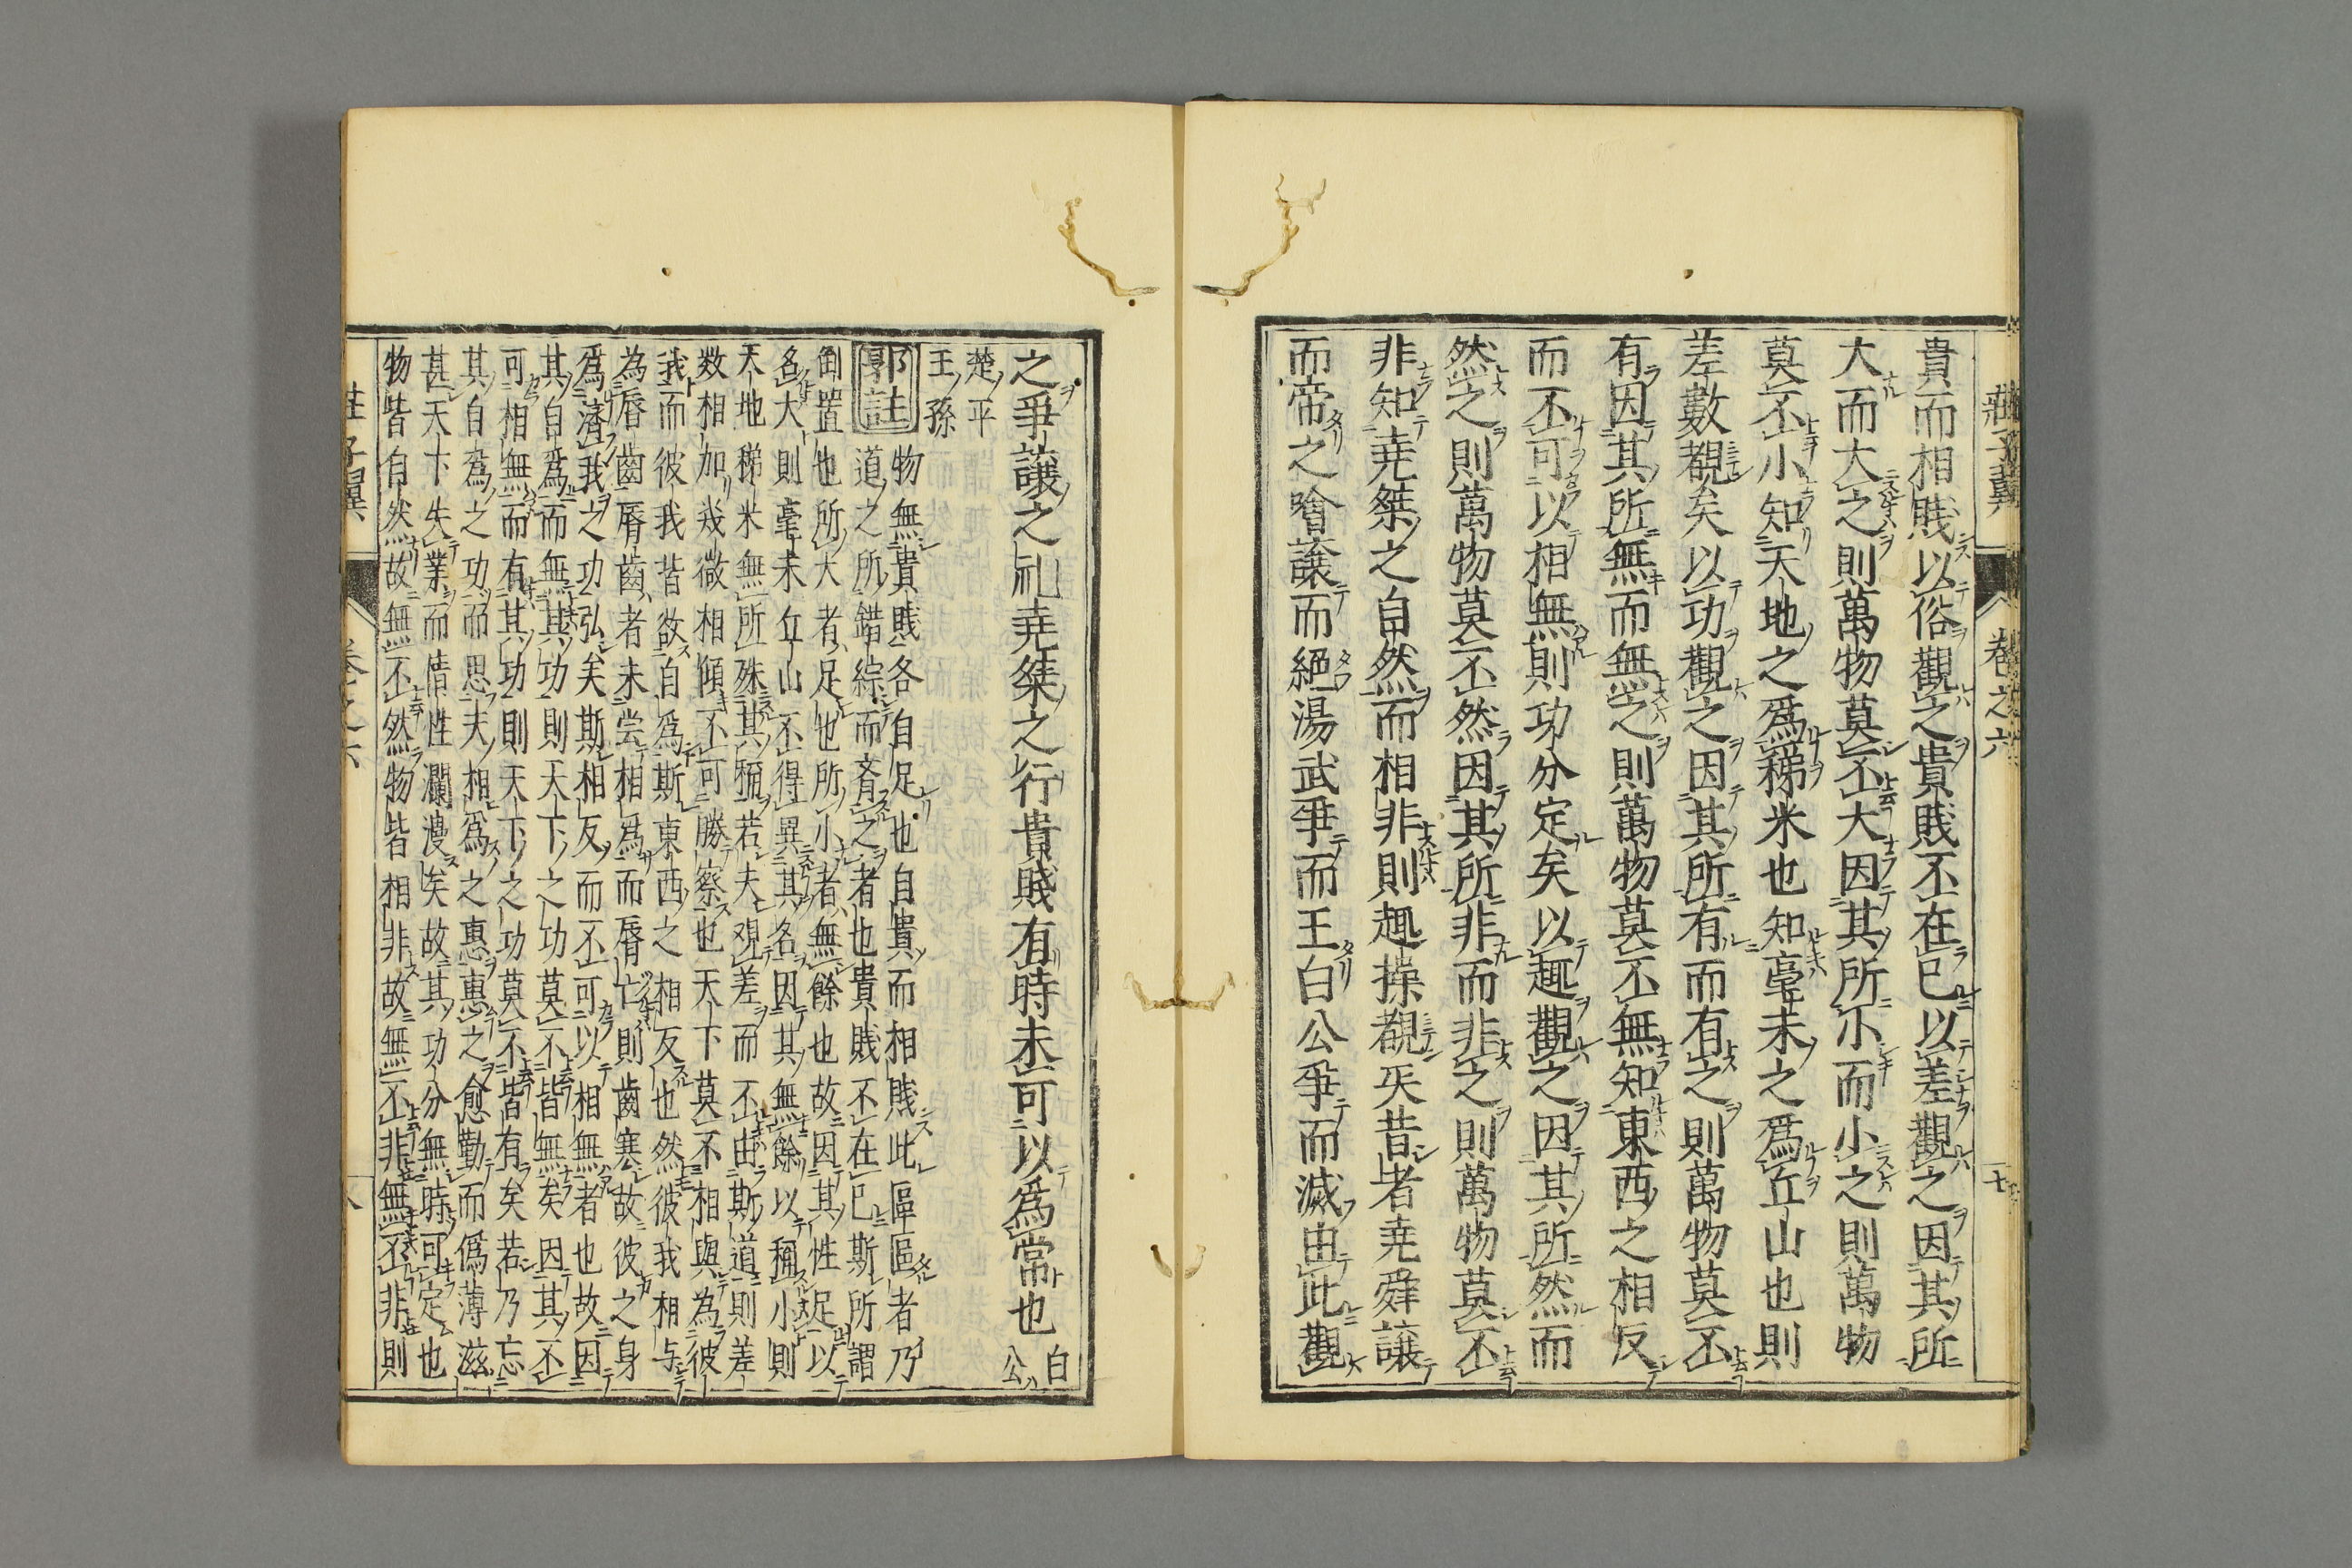 莊子翼 卷之六 十七
貴而相賤以俗觀之貴賤不在已以差觀之因其所
大而大之則萬物莫不大因其所小而小之則萬物
莫不小知天地之爲稊米也知毫末之爲丘山也則
差數覩矣以功觀之因其所有而有之則萬物莫不
有因其所無而無之則萬物莫不無知東西之相反
而不可以相無則功分定矣以趣觀之因其所然而
然之則萬物莫不然因其所非而非之則萬物莫不
非知尭桀之自然而相非則趣操覩矣昔者尭舜讓
而帝之噲讓而絕湯武爭而王白公爭而滅由此觀
之爭讓之礼尭桀之行貴賤有時未可以爲常也白公
楚平
王孫
郭註 物無貴賤各自足也自貴而相賤此區區者乃
道之所錯綜而斉之者也貴賤不在已斯所謂
倒置也所大者足也所小者無餘也故因其性足以
名大則毫末丘山不得異其名因其無餘以稱小則
天地稊米無所殊其稱若夫观差而不由斯道則差
数相加幾微相傾不可勝察也天下莫不相與為彼
我而彼我皆欲自爲斯東西之相反也然彼我相与
為唇齒唇齒者未尝相爲而唇亡則齒寒故彼之身
爲濟我之功弘矣斯相反而不可以相無者也故因
其自爲而無其功則天下之功莫不皆無矣因其不
可相無而有其功則天下之功莫不皆有矣若乃忘
其自為之功而思夫相爲之惠惠之愈勤而僞薄滋
甚天下失業而情性瀾漫矣故其功分無時可定也
物皆自然故無不然物皆相非故無不非無不非則
莊子翼 卷之六 八